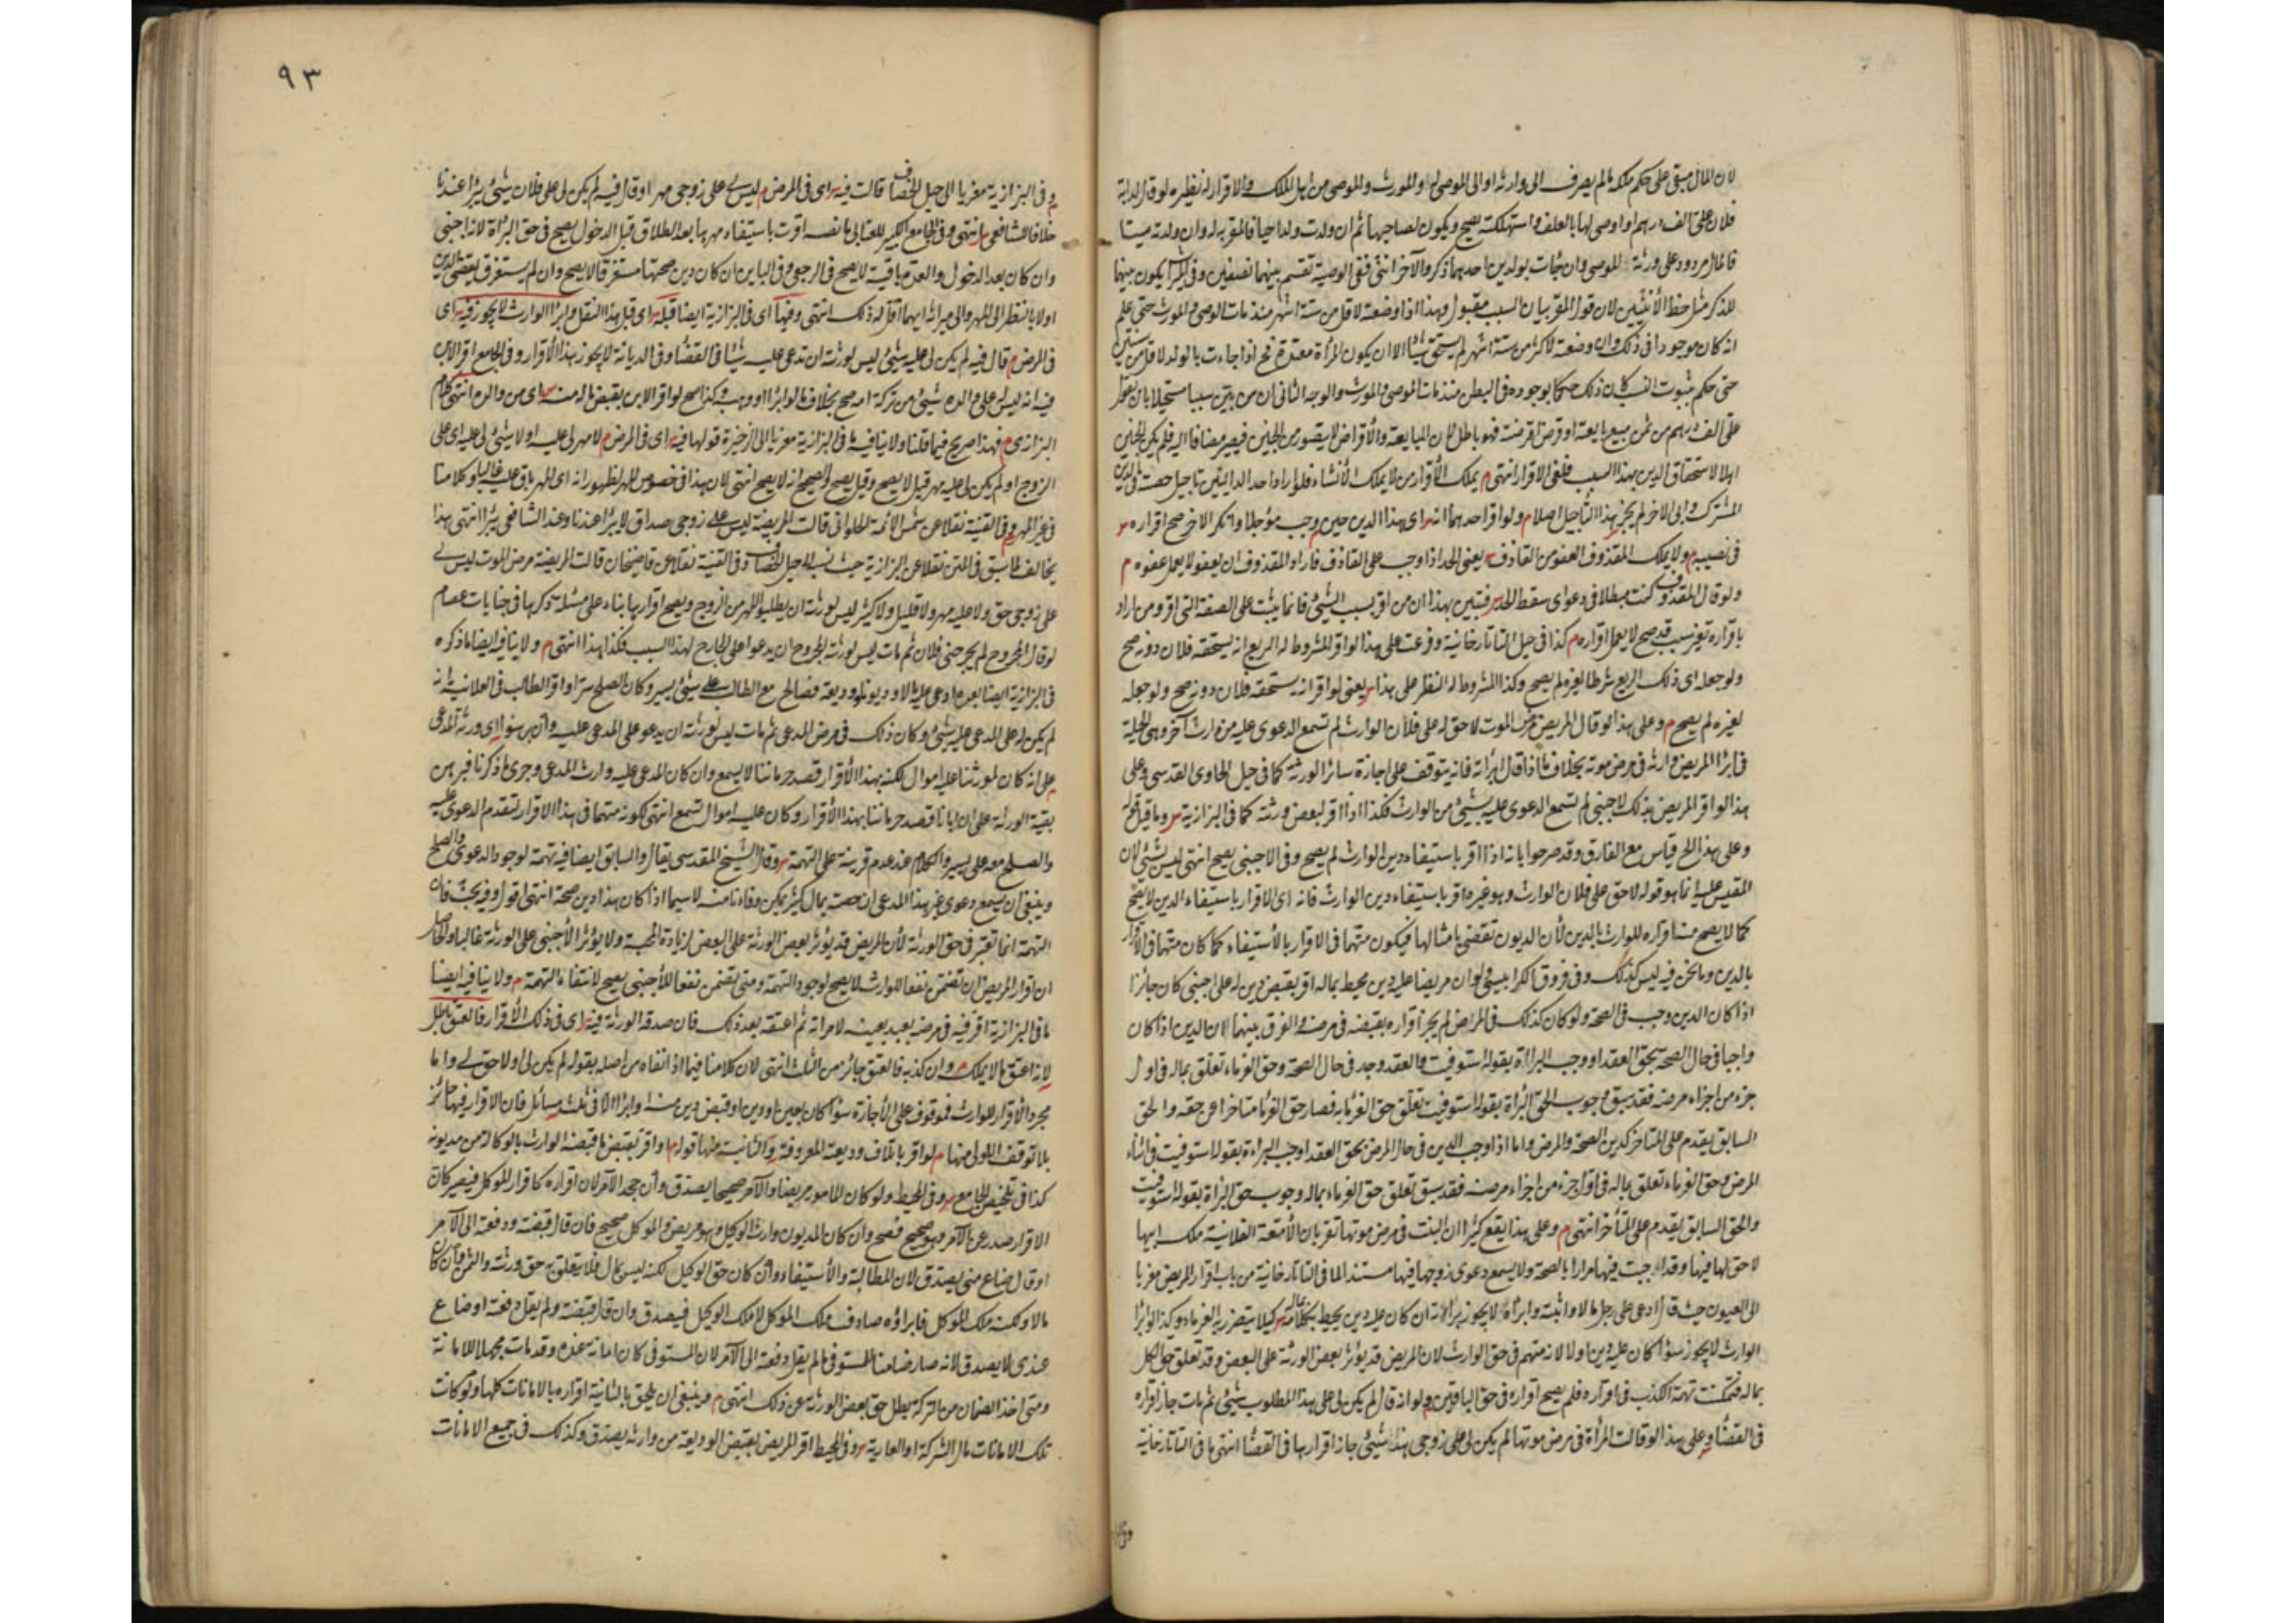 لان المال مبقى على حكم ملكه ما لم يصرف الى وارثه او الى الموصى له والمورث والموصى من اهل الملك والاقرار له نظيره لو قال لدابة
فلان على الف درهم او اوصى لها بالعلف واستهلكته يصح ويكون لصاحبها ثم ان ولدت ولدا حيا فالمقر به له وان ولدته ميتا
فالمال مردود على ورثة الموصى وان جاءت بولدين احدهما ذكر والآخر انثى ففى الوصية تقسم بينهما نصفين وفى الميراث يكون بينهما
للذكر مثل حظ الأنثيين لان قول المقر بيان السبب مقبول وهذا اذا وضعته لاقل من ستة اشهر منذ مات الموصى والمورث حتى علم
انه كان موجودا فى ذلك وان وضعته لاكثر من ستة اشهر لم يستحق شيئا الا ان يكون المرأة معتدة فح اذا جاءت بالولد لاقل من سنتين
حتى حكم بثبوت النسب كان ذلك حكما بوجوده فى البطن منذ مات الموصى والمورث والوجه الثانى ان من بين سببا مستحيلا بان يقول
على الف درهم من ثمن مبيع بايعته او قرض اقرضنه فهو باطل لان المبايعة والأقراض لا يتصور من الجنين فيصير مضافا اليه فلم يكن الجنين
اهلا لاستحقاق الدين بهذا السبب فلغى الاقرار انتهى م يملك الأقرار من لا يملك الأنشاء فلو اراد احد الدائنين تاجيل حصته فى الدين
المشترك وابى الاخر لم يجز بهذا التأجيل اصلا م ولو اقر احدهما انه اى هذا الدين حين وجب مؤجلا وانكر الاخر صح اقراره
فى نصيبه م ولا يملك المقذوف العفو من القاذف يعنى الحد اذا وجب على القاذف فاراد المقذوف ان يعفو لا يعمل عفوه م
ولو قال المقذوف كنت مبطلا فى دعواى سقط الحد فتبين بهذا ان من اقر بسبب الشئ فانما يثبت على الصفة التى اقر ومن اراد
باقراره تغير سبب قد صح لا يعمل اقراره م كذا فى حيل التاتارخانية وفرعت على هذا لو اقر المشروط له الريع انه يستحقه فلان دونه صح
ولو جعله اى ذلك الريع شرطا لغيره لم يصح وكذا المشروط له النظر على هذا يعنى لو اقر انه يستحقه فلان دونه صح ولو جعله
لغيره لم يصح م وعلى هذا لو قال المريض مرض الموت لا حق لى على فلان الوارث لم تسمع الدعوى عليه من وارث آخر وهى الحيلة
فى ابراء المريض وارثه فى مرض موته بخلاف ما اذا قال ابرأته فانه يتوقف على اجازة سائر الورثة كما فى حيل الحاوى القدسى وعلى
هذا لو اقر المريض بذلك لاجنبى لم تسمع الدعوى عليه بشئ من الوارث فكذا اذا اقر لبعض ورثته كما فى البزازية وما قيل قوله
وعلى هذا الخ قياس مع الفارق وقد صرحوا بانه اذا اقر باستيفاء دين الوارث لم يصح وفى الاجنبى يصح انتهى ليس بشئ لان
المقيس عليه انما هو قوله لا حق على فلان الوارث وهو غير ما اقر باستيفاء دين الوارث فانه اى الاقرار باستيفاء الدين لا يصح
كما لا يصح منه اقراره للوارث بالدين لأن الديون تقضى بامثالها فيكون متهما فى الاقرار بالأستيفاء كما كان متهما فى الأقرار
بالدين وما نحن فيه ليس كذلك وفى فروق الكرابيسى ولو ان مريضا عليه دين محيط بماله اقر بقبض دين له على اجنبى كان جائزا
اذا كان الدين وجب فى الصحة ولو كان كذلك فى المرض لم يجز اقراره بقبضه فى مرضه والفرق بينهما لان الدين اذا كان
واجبا فى حال الصحة بحق العقد او وجب البراءة بقوله استوفيت فالعقد وجد فى حال الصحة وحق الغرماء تعلق بماله فى اول
جزء من اجزاء مرضه فقد سبق وجوب الحق البرأة بقوله استوفيت تعلق حق الغرماء به فصار حق الغرماء متاخرا عن حقه والحق
السابق يقدم على المتاخر كدين الصحة والمرض واما اذا وجب الدين فى حال المرض بحق العقد اوجب البراءة بقوله استوفيت فى اثناء
المرض وحق الغرماء تعلق بماله فى اول جزء من اجزاء مرضه فقد سبق تعلق حق الغرماء بماله وجوب حق البراة بقوله استوفيت
والحق السابق يقدم على المتأخر انتهى م وعلى هذا يقع كثيرا ان البنت فى مرض موتها تقر بان الأمتعة الفلانية ملك ابيها
لا حق لها فيها وقد اجبت فيها مرارا بالصحة ولا يسمع دعوى زوجها فيها مستندا لما فى التاتارخانية من باب اقرار المريض معزيا
الى العيون حيث قال ادعى على رجل مالا واثبته وابرأه لا يجوز برأته ان كان عليه دين يحيط بكل ماله كيلا يتضرر به الغرماء وكذا لو ابرأ
الوارث لا يجوز سواء كان عليه دين اولا لانه متهم فى حق الوارث لان المريض قد يؤثر بعض الورثة على البعض وقد تعلق حق الكل
بماله فتمكنت تهمة الكذب فى اقراره فلم يصح اقراره فى حق الباقين ولو انه قال لم يكن لى على هذا المطلوب شئ ثم مات جاز اقراره
فى القضاء وعلى هذا لو قالت المرأة فى مرض موتها لم يكن لى على زوجى هذا شئ جاز اقرارها فى القضاء انتهى ما فى التاتارخانية
وفى
٩٣
م وفى البزازية معزيا الى حيل الخصاف قالت فيه اى فى المرض م ليس لى على زوجى مهر او قال فيه لم يكن لى على فلان شئ يبرأ عندنا
خلافا للشافعى انتهى وفى الجامع الكبير للعتابى ما نصه اقرت باستيفاء مهرها بعد الطلاق قبل الدخول يصح فى حق البراة لانه اجنبى
وان كان بعد الدخول والعدة باقية لا يصح فى الرجعى وفى الباين ان كان دين صحتها مستغرقا لا يصح وان لم يستغرق يقضى الدين
اولا بالنظر الى المهر والى ميراثه ايهما اقل له ذلك انتهى وفيها اى فى البزازية ايضا قبله اى قبل هذا النقل وابراء الوارث لا يجوز فيه اى
فى المرض م قال فيه لم يكن لى عليه شئ ليس لورثته ان تدعى عليه شيئا فى القضاء وفى الديانة لا يجوز بهذا الأقرار وفى الجامع اقر الابن
فيه انه ليس لى على والده شئ من تركة امه صح بخلاف ما لو ابرأ او وهب وكذا صح لو اقر الابن بقبض ماله منه اى من والده انتهى كلام
البزازى م فهذا صريح فيما قلنا ولا ينافيه ما فى البزازية معزيا الى الذخيرة قولها فيه اى فى المرض م لا مهر لى عليه او لا شئ لى عليه اى على
الزوج او لم يكن لى عليه مهر قيل لا يصح وقيل يصح والصحيح انه لا يصح انتهى لان هذا فى خصوص المهر لظهور انه اى المهر باق عليه غالبا وكلامنا
فى غير المهر وفى القنية نقلا عن شمس الائمة الحلوانى قالت المريضة ليس على زوجى صداق لا يبرأ عندنا وعند الشافعى يبرأ انتهى هذا
يخالف لما سبق فى المتن نقلا عن البزازية حيث نسبه لحيل الخصاف وفى القنية نقلا عن قاضيخان قالت المريضة مرض الموت ليس لى
على زوجى حق ولا عليه مهر ولا قليل ولا كثير ليس لورثته ان يطلبوا المهر من الزوج ويصح اقرارها بناء على مسئلة ذكرها فى جنايات عصام
لو قال المجروح لم يجرحنى فلان ثم مات ليس لورثة المجروح ان يدعوا على الجارح لهذا السبب فكذا هذا انتهى م ولا ينافيه ايضا ما ذكره
فى البزازية ايضا بعده ادعى عليه مالا وديونا ووديعة فصالح مع الطالب على شئ يسير وكان الصلح سرا واقر الطالب فى العلانية انه
لم يكن له على المدعى عليه شئ وكان ذلك فى مرض المدعى ثم مات ليس لورثته ان يدعو على المدعى عليه وان برهنوا اى ورثة المدعى
على انه كان لمورثنا عليه اموال لكنه بهذا الأقرار قصد حرماننا لا يسمع وان كان المدعى عليه وارث المدعى وجرى ما ذكرنا فبرهن
بقية الورثة على ان ابانا قصد حرماننا بهذا الأقرار وكان عليه اموال تسمع انتهى لكونه متهما فى هذا الاقرار لتقدم الدعوى عليه
والصلح معه على يسير والكلام عند عدم قرينة على التهمة وقال الشيخ المقدسى يقال والسابق ايضا فيه تهمة لوجود الدعوى والصلح
وينبغى ان يسمع دعوى غير هذا المدعى ان حصته بمال كثير يمكن وفاءنا منه لا سيما اذا كان هذا دين صحة انتهى اقول وفيه بحث فان
التهمة انما تعتبر فى حق الورثة لأن المريض قد يؤثر بعض الورثة على البعض لزيادة المحبة ولا يؤثر الأجنبى على الورثة غالبا والحاصل
ان اقرار المريض ان تضمن نفعا للوارث لا يصح لوجود التهمة ومتى تضمن نفعا للأجنبى يصح لانتفاء التهمة م ولا ينافيه ايضا
ما فى البزازية اقر فيه فى مرضه بعبد بعينه لامراته ثم اعتقه بعد ذلك فان صدقه الورثة فيه اى فى ذلك الأقرار فالعتق باطل
لانه اعتق مالا يملك م وان كذبه فالعتق جائز من الثلث انتهى لان كلامنا فيما اذا نفاه من اصله بقوله لم يكن لى او لا حق لى واما
مجرد الأقرار للوارث فموقوف على الأجازة سواء كان بعين او دين او قبض دين منه او ابراء الا فى ثلث مسائل فان الاقرار فيها جائز
بلا توقف الاولى منها م لو اقر باتلاف وديعته المعروفة والثانية منها قوله م او اقر بقبض ما قبضه الوارث بالوكالة من مديونه
كذا فى تلخيص الجامع وفى المحيط ولو كان المامور مريضا والآمر صحيحا يصدق وان جحد الآمر لان اقراره كاقرار الموكل فيصير كان
الاقرار صدر عن الآمر وهو صحيح فصح وان كان المديون وارث الوكيل وهو مريض والموكل صحيح فان قال قبضته ودفعته الى الآمر
او قال ضاع منى يصدق لان المطالبة والأستيفاء وان كان حق الوكيل لكنه ليس بمال فلا يتعلق به حق ورثته والثمن وان كان
مالا ولكنه ملك الموكل فابراؤه صادف ملك الموكل لا ملك الوكيل فيصدق وان قال قبضته ولم يقل دفعته او ضاع
عندى لا يصدق لانه صار ضامنا للمستوفى ما لم يقل دفعته الى الآمر لان المستوفى كان امانة عنده وقد مات مجهلا للامانة
ومتى اخذ الضمان من التركة يبطل حق بعض الورثة عن ذلك انتهى م وينبغى ان يلحق بالثانية اقراره بالامانات كلها ولو كانت
تلك الامانات مال الشركة او العارية وفى المحيط اقر المريض بقبض الوديعة من وارثه يصدق وكذلك فى جميع الامانات